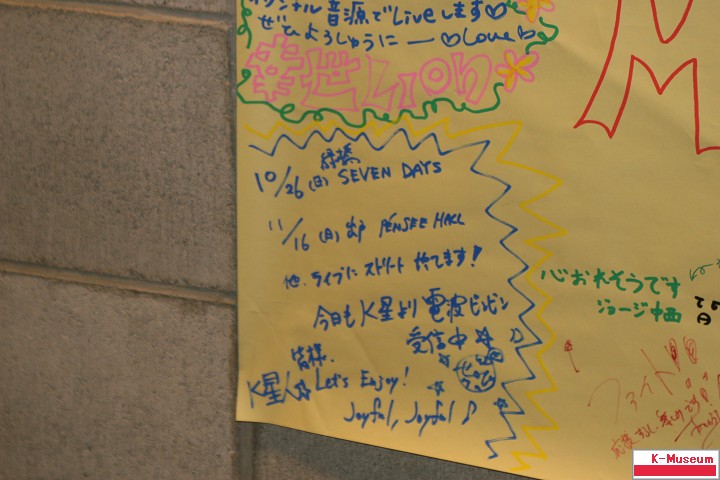 音源でLiveします♡
ぜひよろしゅうにー♡Love♡
世Lion
10/26(日) SEVEN DAYS
11/16(日) PENSEE HALL
他、ライブにストリートやてます!
今日もK星より電波ビンビン
受信中
皆様、
K星人 Let's Enjoy!
Joyful, Joyful♪
心おれそうです
ジョージ中西
ファイト!!
K-Museum